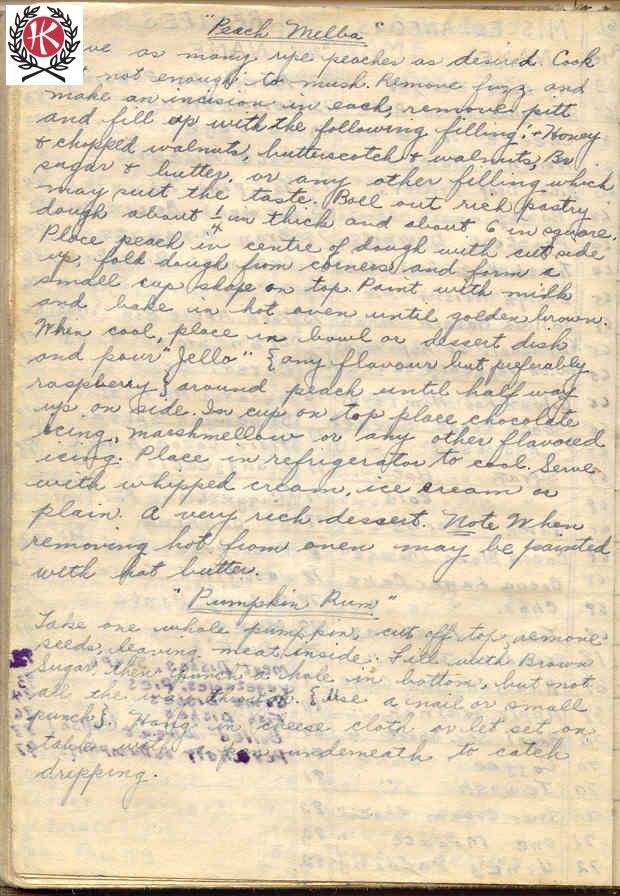 "Peach Melba"
as many ripe peaches as desired. Cook
not enough to mush. Remove fuzz and
make an incision in each, remove pitt
and fill up with the following filling: + Honey
& chopped walnuts, butterscotch & walnuts, Br
sugar & butter, or any other filling which
may suit the taste. Roll out rich pastry
dough about 1/4 in thick and about 6 in square.
Place peach in centre of dough with cut side
up, fold dough from corners and form a
small cup shape on top. Paint with milk
and bake in hot oven until golden brown.
When cool, place in bowl or dessert dish
and pour "Jello" {any flavour but preferably
raspberry} around peach until half way
up on side. In cup on top place chocolate
icing, marshmellow or any other flavored
icing. Place in refrigerator to cool. Serve
with whipped cream, ice cream or
plain. A very rich dessert. Note When
removing hot from oven may be painted
with hot butter.
"Pumpkin Rum"
Take one whole pumpkin, cut off top, remove
seeds, leaving meat inside. Fill with Brown
Sugar, then punch a hole in bottom, but not
all the way {Use a nail or small
punch}. Hang in cheese cloth or let set on
table with underneath to catch
dripping.
K